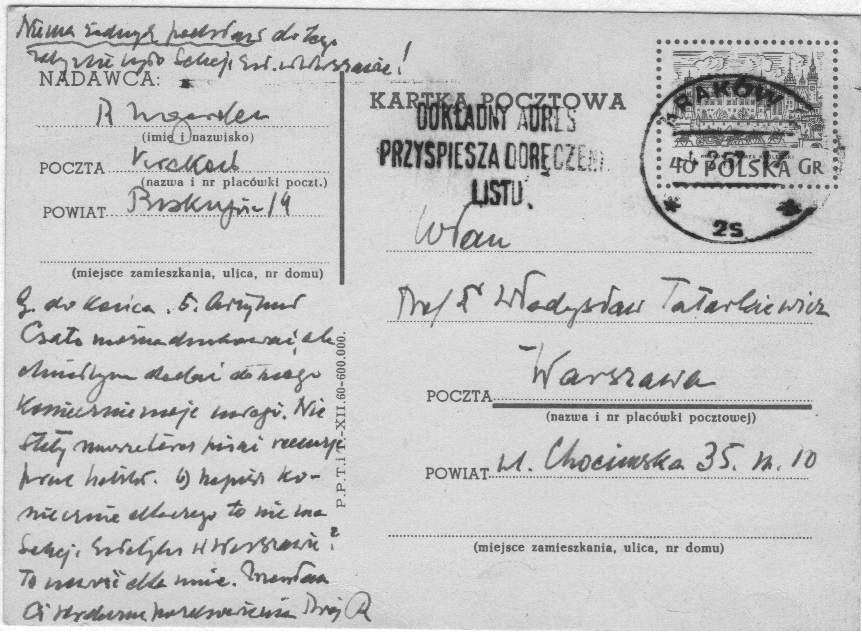 Niema żadnych podstaw do tego
żeby nie było Sekcji Est. w Warszawie!
NADAWCA:
R Ingarden
(imię i nazwisko)
POCZTA Kraków
(nazwa i nr placówki poczt.)
POWIAT Biskupia 14
(miejsce zamieszkania, ulica, nr domu)
G. do końca. 5. Artykuł
można drukować, ale
chciałbym dodać do niego
koniecznie moje uwagi. Nie
stety muszę teraz pisać recenzję
prac 6) Napisz ko-
niecznie dlaczego to nie ma
Sekcji Estetyki w Warszawie?
To dla mnie.
Ci serdeczne pozdrowienia Twój R
P.P.T. i T.-XII.60-600.000.
KARTKA POCZTOWA
DOKŁADNY ADRES
PRZYSPIESZA DORĘCZENI
LISTU
KRAKÓW
2s
40 POLSKA GR
WPan
Prof Dr Władysław Tatarkiewicz
POCZTA Warszawa
(nazwa i nr placówki pocztowej)
POWIAT ul. Chocimska 35. m. 10
(miejsce zamieszkania, ulica, nr domu)